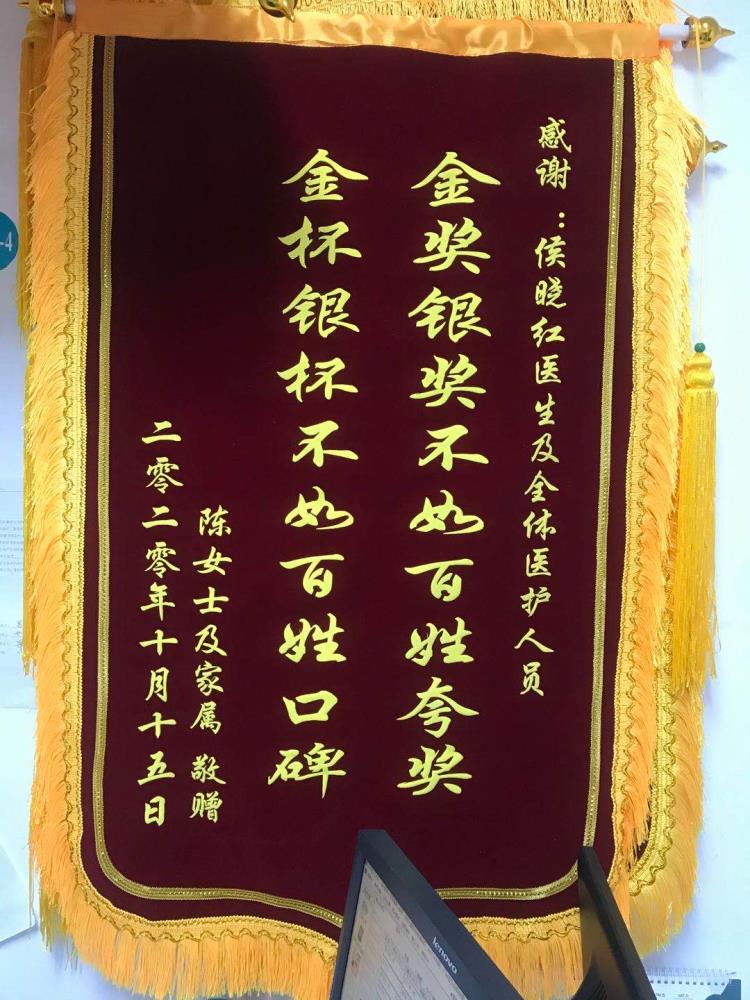 感谢：侯晓红医生及全体医护人员
金奖银奖不如百姓夸奖
金杯银杯不如百姓口碑
陈女士及家属 敬赠
二零二零年十月十五日
lenovo
-4